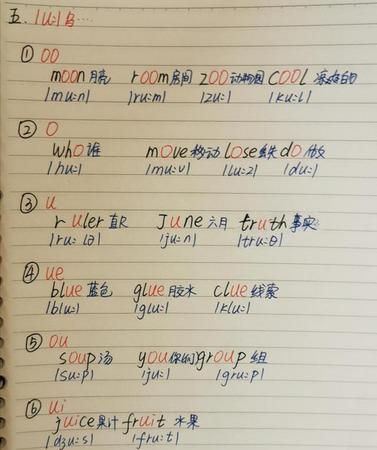 五. /u:/乌…
① oo
moon月亮 room房间 zoo动物园 cool 凉爽的
/mu:n/ /ru:m/ /zu:/ /ku:l/
② o
who谁 move移动 lose丢失 do做
/hu:/ /mu:v/ /lu:z/ /du:/
③ u
ruler直尺 June六月 truth事实
/ru:lə/ /ju:n/ /tru:θ/
④ ue
blue蓝色 glue胶水 clue线索
/blu:/ /glu:/ /klu:/
⑤ ou
soup汤 you你(们) group组
/su:p/ /ju:/ /gru:p/
⑥ ui
juice果汁 fruit水果
/dʒu:s/ /fru:t/